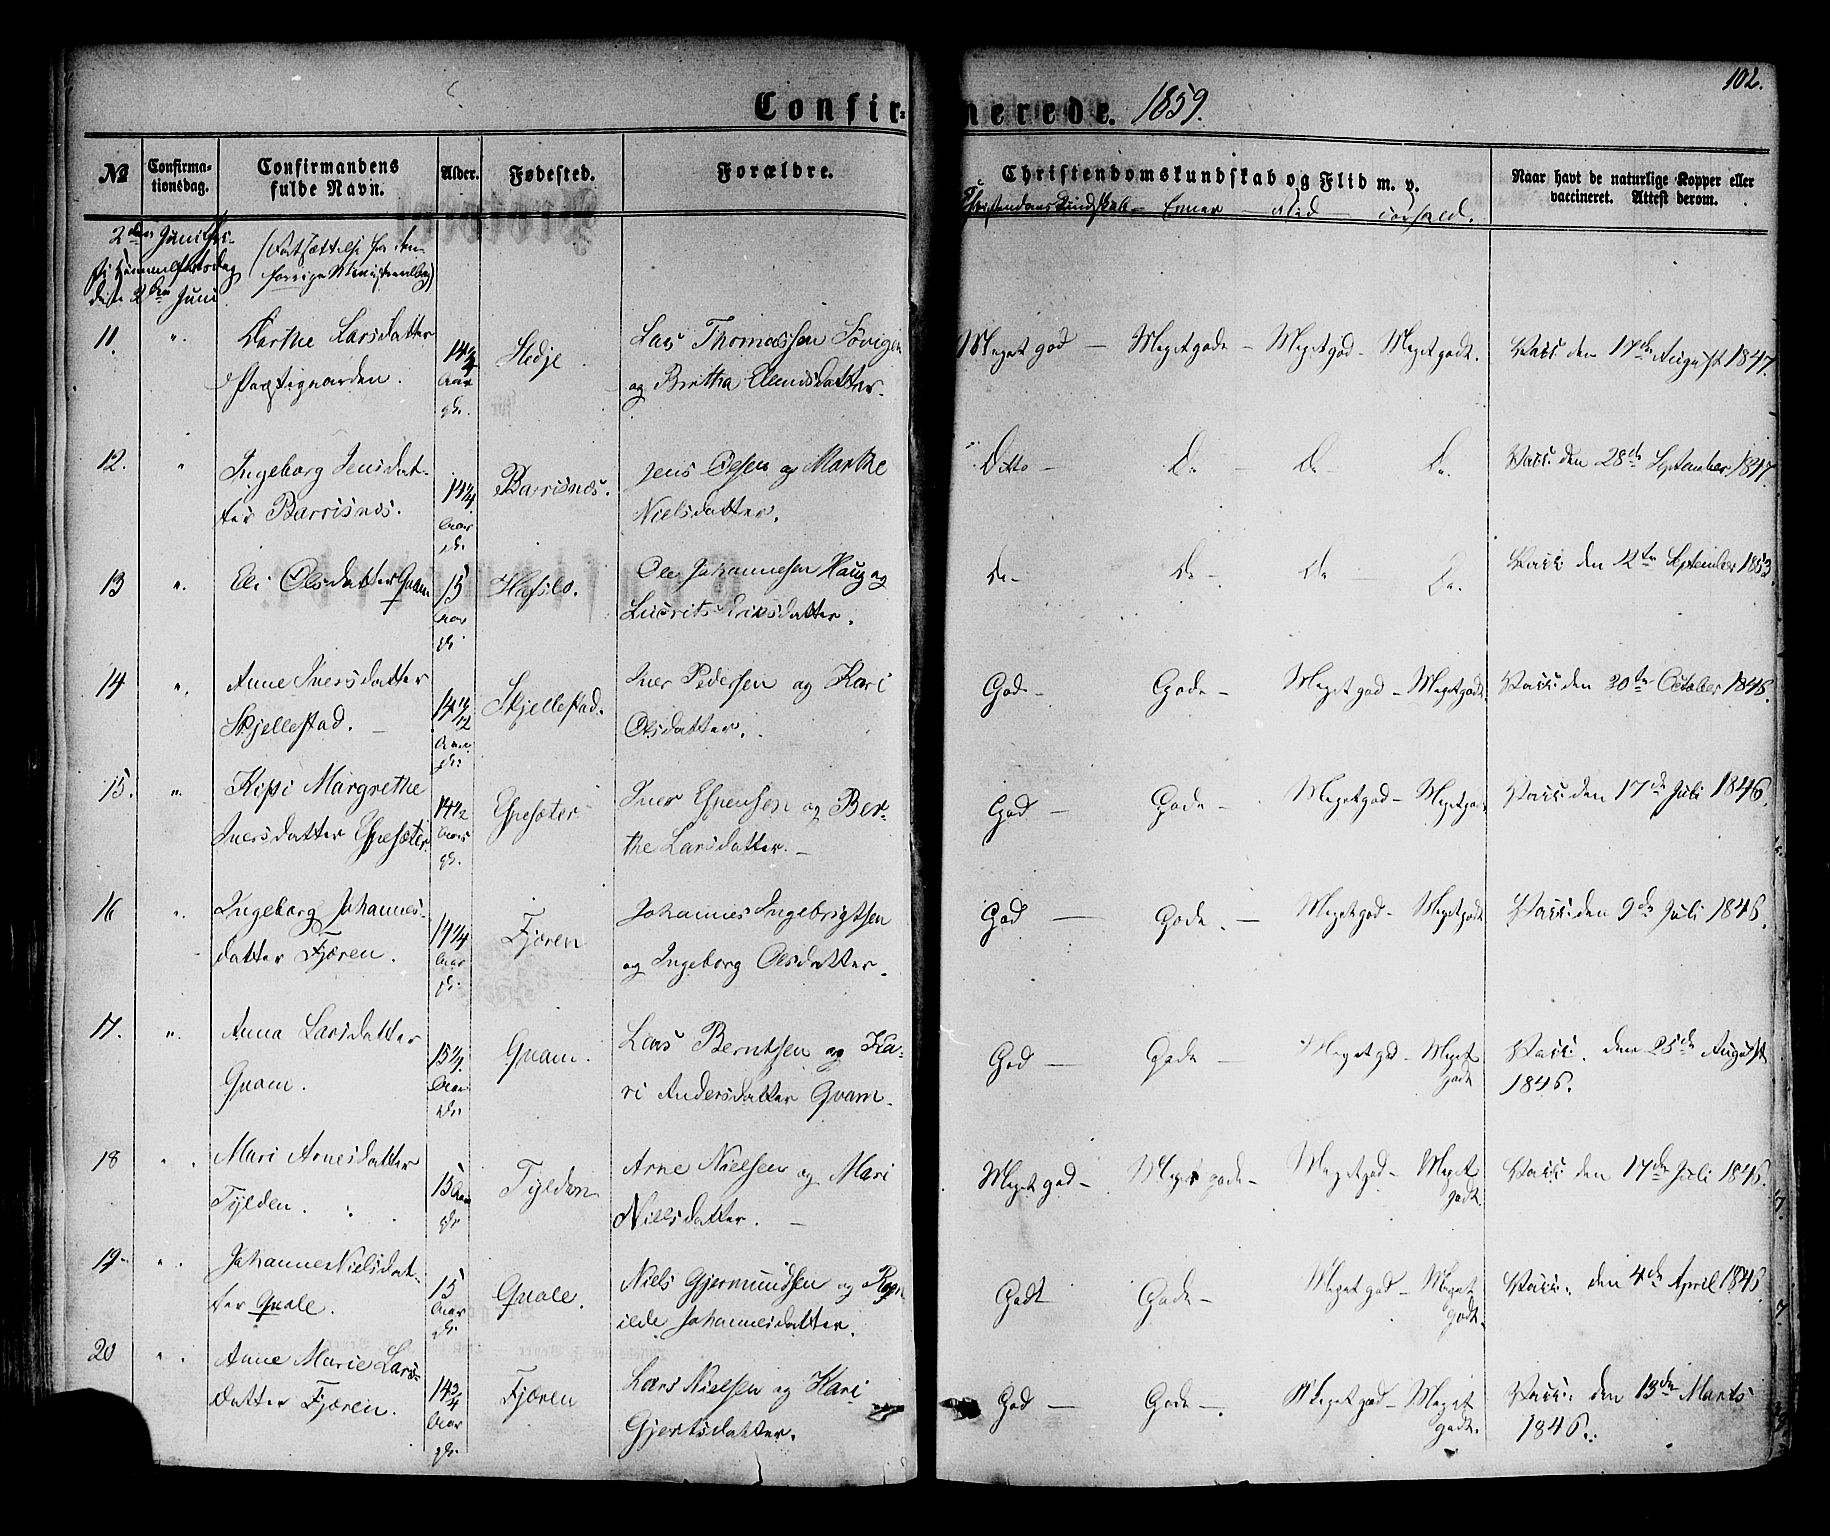 102.
Confirmerede. 1859.
№
Confirma-
tionsdag.
Confirmandens
fulde Navn.
Alder.
Fødested.
Forældre.
Christendomskundskab og Flid m. v.
Naar havt de naturlige Kopper eller
vaccineret. Attest derom.
Christendomskundskab — Evner — Flid — Forhold.
2den Juni
Himmelfartsdag
dito 2den Juni
(Fortsættelse fra den
forrige Ministerialbog)
11. " Marthe Larsdatter
Præstigaarden.
14¾ Aar gl.
Hedje.
Lars Thomassen Sövigen
og Brittha Clemisdatter.
Meget god — Megetgode — Megetgod — Megetgodt.
Vacc. den 17de August 1847.
12. " Ingeborg Jensdat-
ter Barrisnæs.
14¼ Aar gl.
Barrisnæs.
Jens Olesen og Marthe
Nielsdatter.
Ditto — Do — Do — Do.
Vacc: den 28de September 1847.
13 " Eli Olsdatter Quam
15 Aar gl.
Hafslo.
Ole Johannesen Haug og
Lucrits Eriksdatter.
Do — Do — Do — Do.
Vacc den 12te September 1853
14 " Anne Iversdatter
Skjellestad.
Aar gl:
Skjellestad.
Iver Pedersen og Kari
Olsdatter.
God — Gode — Meget god — Megetgodt.
Vacc: den 30te October 1846.
15. " Margrethe
Iversdatter Espesæter.
14½ Aar gl.
Espesæter
Iver Espensen og Ber-
the Larsdatter. —
God — Gode — Megetgod — Megetgodt
Vacc: den 17de Juli 1846.
16 " Ingeborg Johannes-
datter Fjæren.
14¼ Aar gl.
Fjæren
Johannes Ingebrigtsen
og Ingeborg Olsdatter.
God — Gode. — Megetgod — Megetgodt
Vacc: den 9de Juli 1846.
17. " Anna Larsdatter
Quam.
Aar gl.
Quam.
Lars Berntsen og Ka-
ri Andersdatter Qvam.
God — Gode — Meget god — Meget
godt
Vacc: den 25de August
1846.
18 " Mari Arnesdatter
Tylden.
15 Aar gl.
Tylden
Arne Nielsen og Mari
Nielsdatter. —
Meget god — Meget gode — Megetgod — Meget
godt.
Vacc: den 17de Juli 1846.
19 " Johanne Nielsdat-
ter Quale.
15 Aar gl.
Quale.
Niels Gjermundsen og Ragn
ilde Johannesdatter.
Godt Gode — Meget god — Meget
godt.
Vacc: den 4de April 1846
20 " Anne Marie Lars-
datter Fjæren.
14¾ Aar gl.
Fjæren
Lars Nielsen og Kari
Gjertsdatter.
God — Gode —. Meget god — Meget
godt.
Vacc: den 13de Marts
1846.